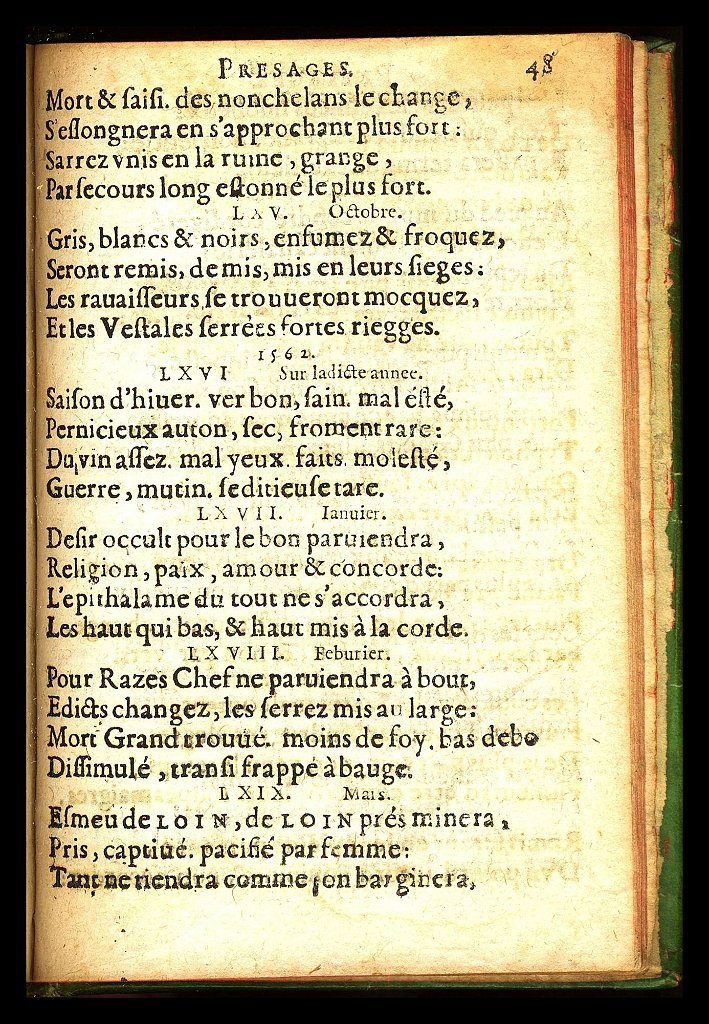 PRESAGES. 48
Mort & ſaiſi. des nonchelans le change,
S'eſlongnera en s'approchant plus fort:
Sarrez vnis en la ruine, grange,
Par ſecours long eſtonné le plus fort.
LXV. Octobre.
Gris, blancs & noirs, enfumez & froquez,
Seront remis, demis, mis en leurs ſieges:
Les rauaiſſeurs ſe trouueront mocquez,
Et les Veſtales ſerrées fortes riegges.
1562.
LXVI Sur ladicte annee.
Saiſon d'hiuer. ver bon, ſain. mal éſté,
Pernicieux auton, ſec, froment rare:
Du vin aſſez. mal yeux. faits. moleſté,
Guerre, mutin. ſeditieuſe tare.
LXVII. Ianuier.
Deſir occult pour le bon paruiendra,
Religion, paix, amour & concorde:
L'epithalame du tout ne s'accordra,
Les haut qui bas, & haut mis à la corde.
LXVIII. Feburier.
Pour Razes Chef ne paruiendra à bout,
Edicts changez, les ſerrez mis au large:
Mort Grand trouué. moins de foy. bas debo
Diſſimulé, tranſi frappé à bauge.
LXIX. Mars.
Eſmeu de LOIN, de LOIN prés minera,
Pris, captiué. pacifié par femme:
Tant ne tiendra comme on barginera,